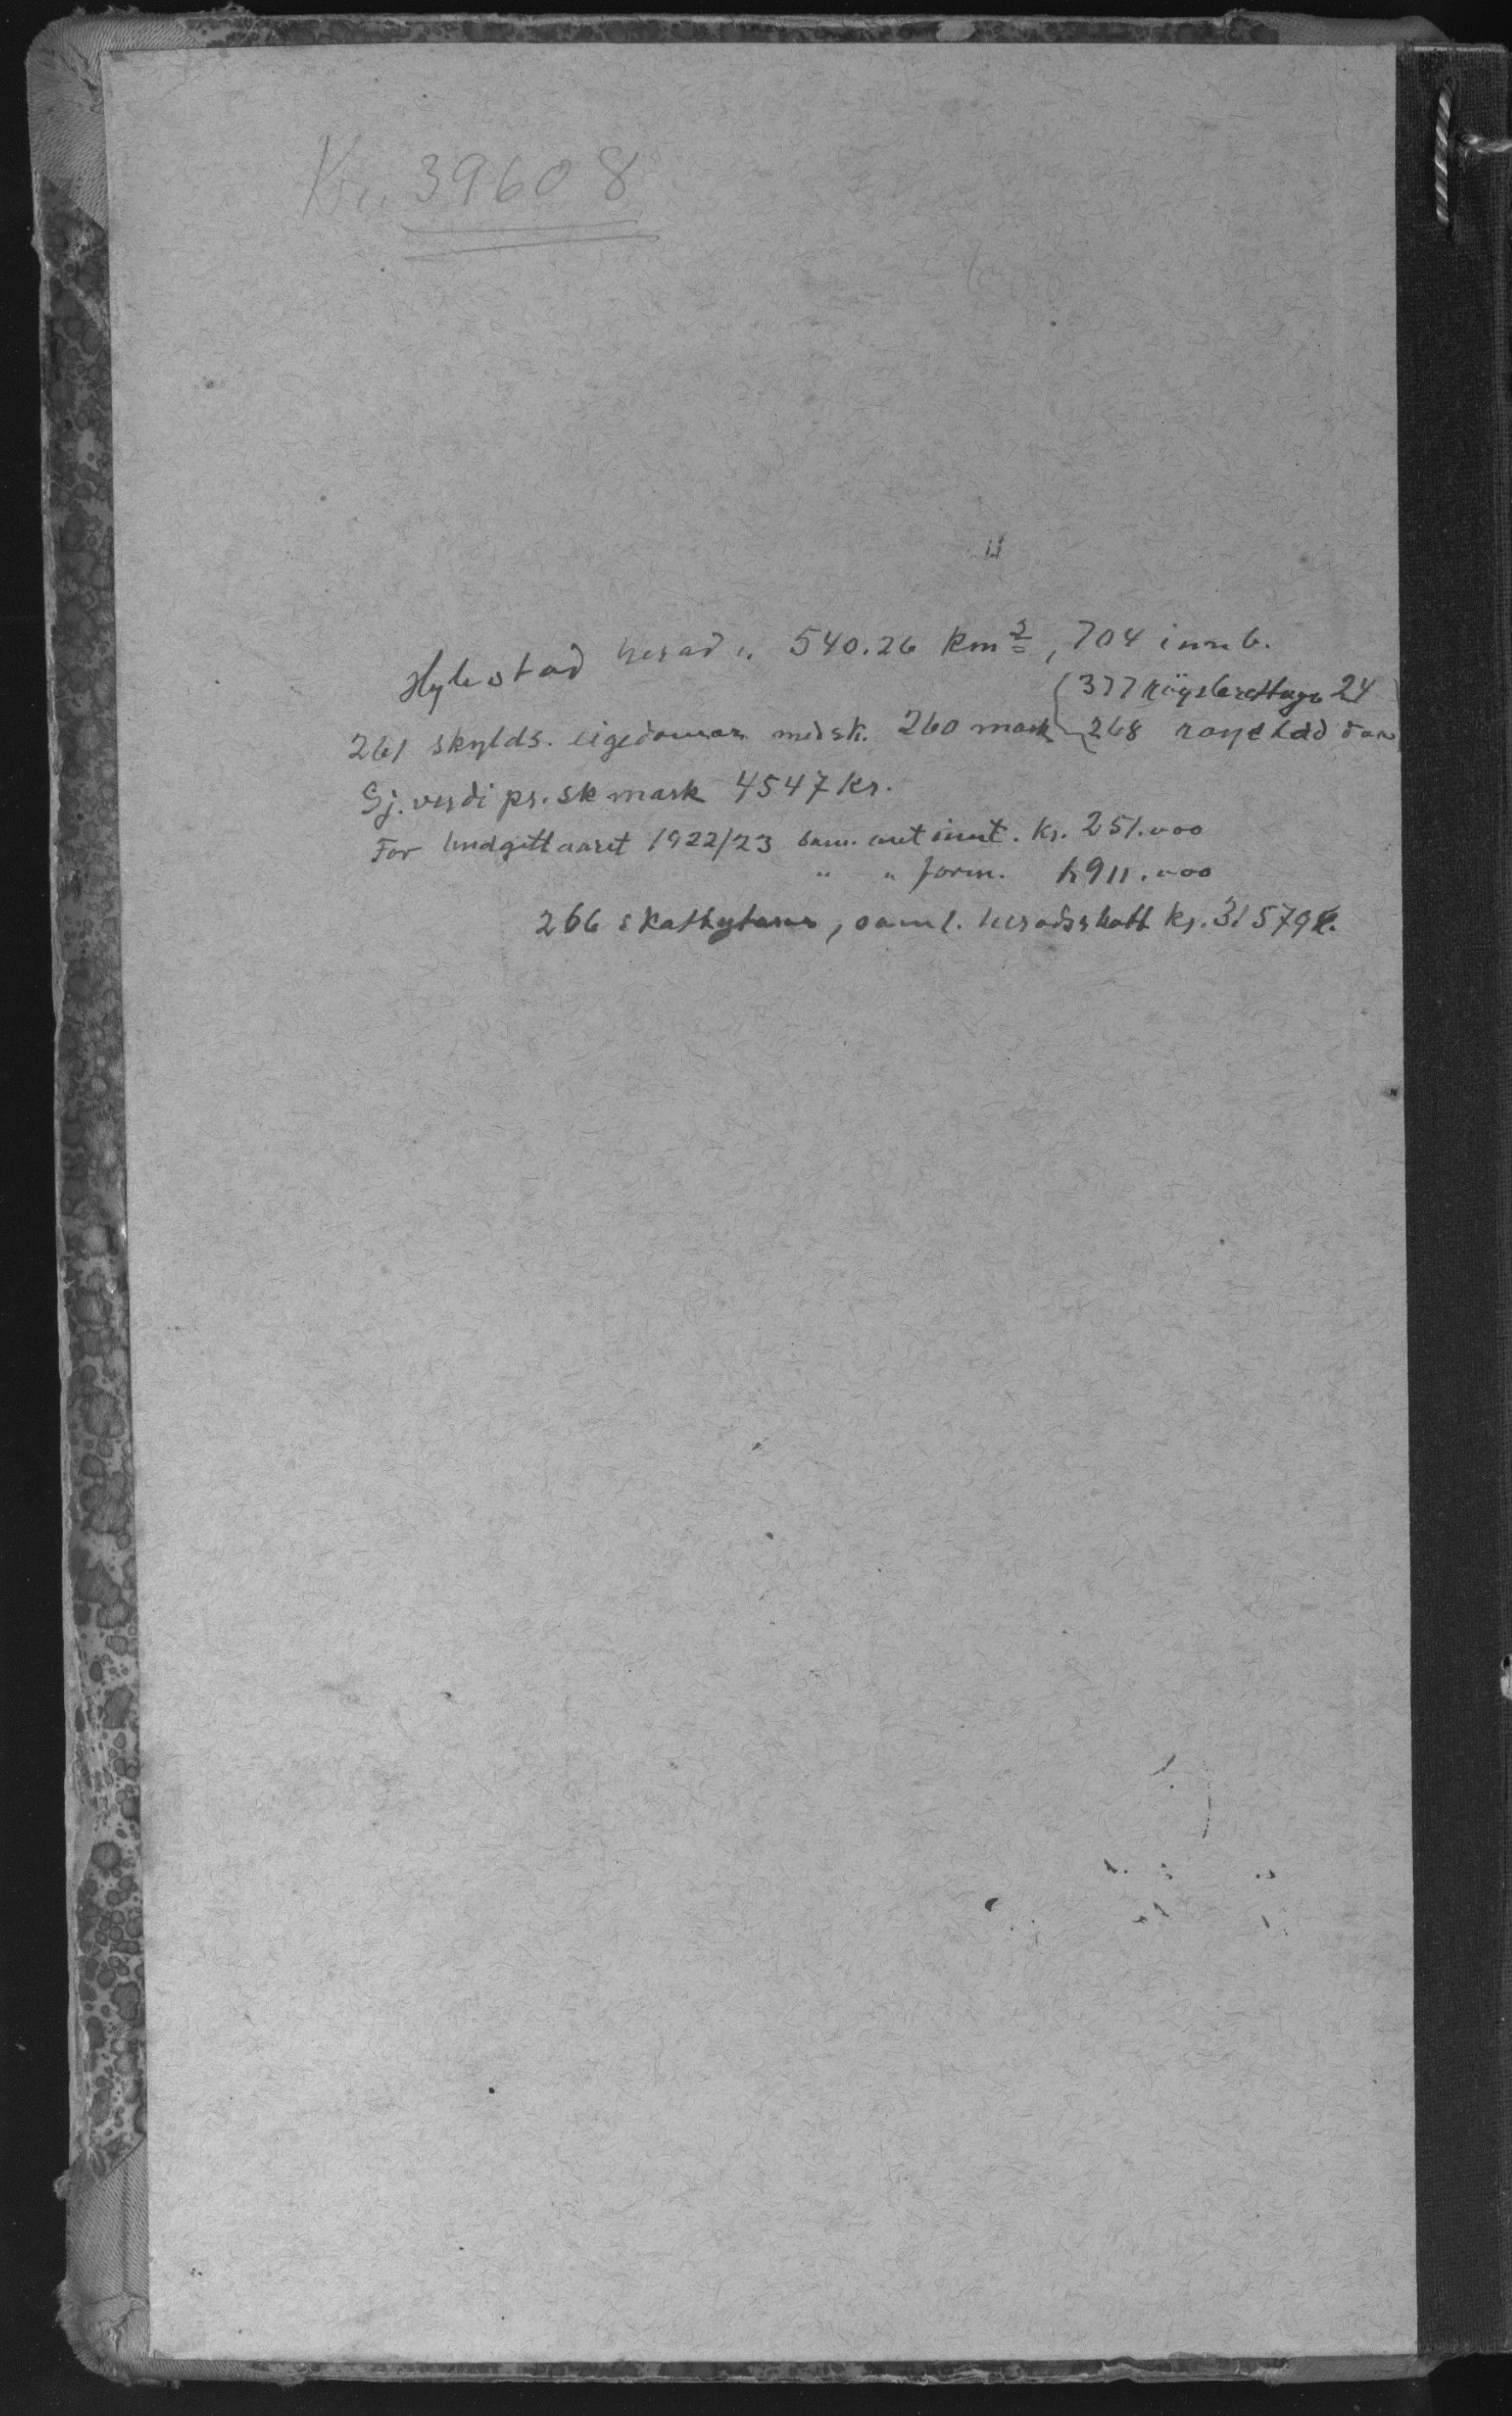 39608
Hylestad herad .. 540.26 km², 704 innb.
377 röysterettuge 24
261 skylds. eigedomar med sk. 260 mark 268 røyst
Gj. verdi pr. sk mark 4547 kr.
For budgettaaret 1922/23 sam. ant innt. kr. 251.000
" " form. k 911.000
266 skattytarar, saml. heradsskatt kr. 31579